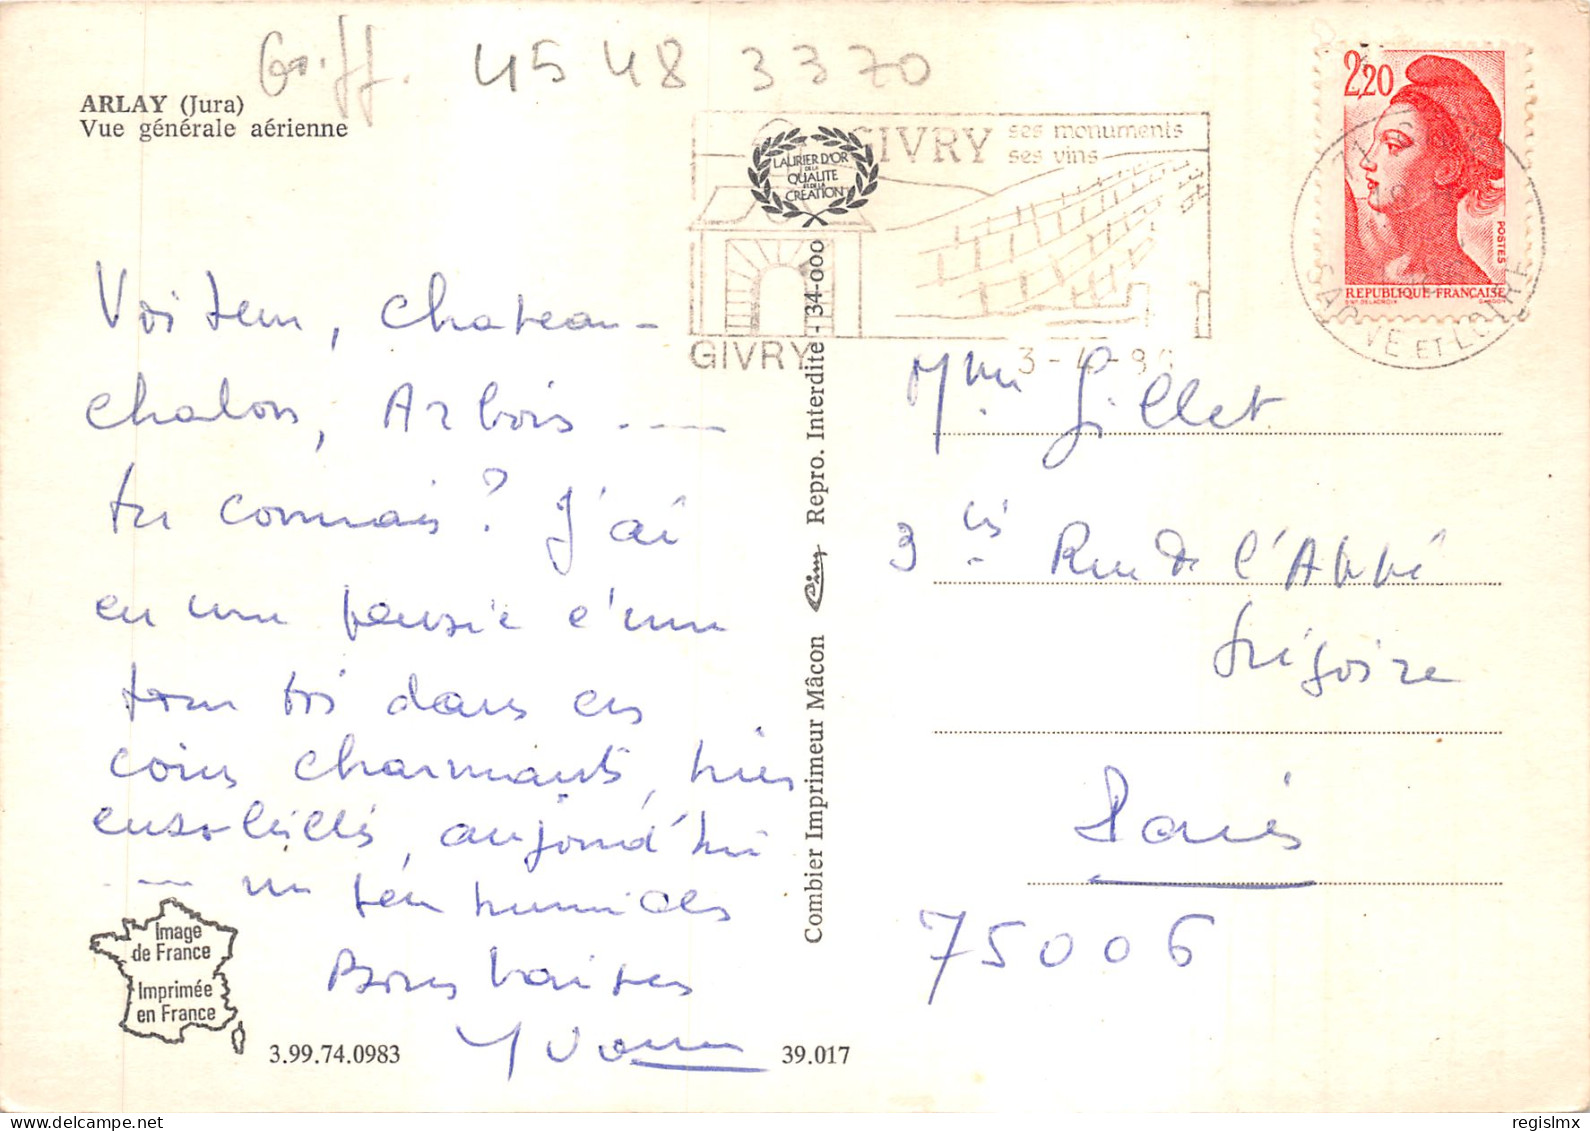 45 48 3370
ARLAY (Jura)
Vue générale aérienne
GIVRY ses monuments
ses vins
LAURIER D'OR
DE LA
QUALITE
ET DE LA
CREATION
GIVRY
3-4-8
SAONE ET LOIRE
2,20
POSTES
REPUBLIQUE FRANÇAISE
Voiteur, Chateau-
chalon, Arbois ----
tu connais? J'ai
eu une pensée émue
pour toi dans ces
coins charmants, hier
ensoleillés, aujourd'hui
---- un peu humides
Bons baisers
Yvonne
Mme Gillet
3 bis Rue de l'Abbé
Grégoire
Paris
75006
Combier Imprimeur Mâcon Cim Repro. Interdite - 34-000
Image
de France
Imprimée
en France
3.99.74.0983
39.017
regislmx